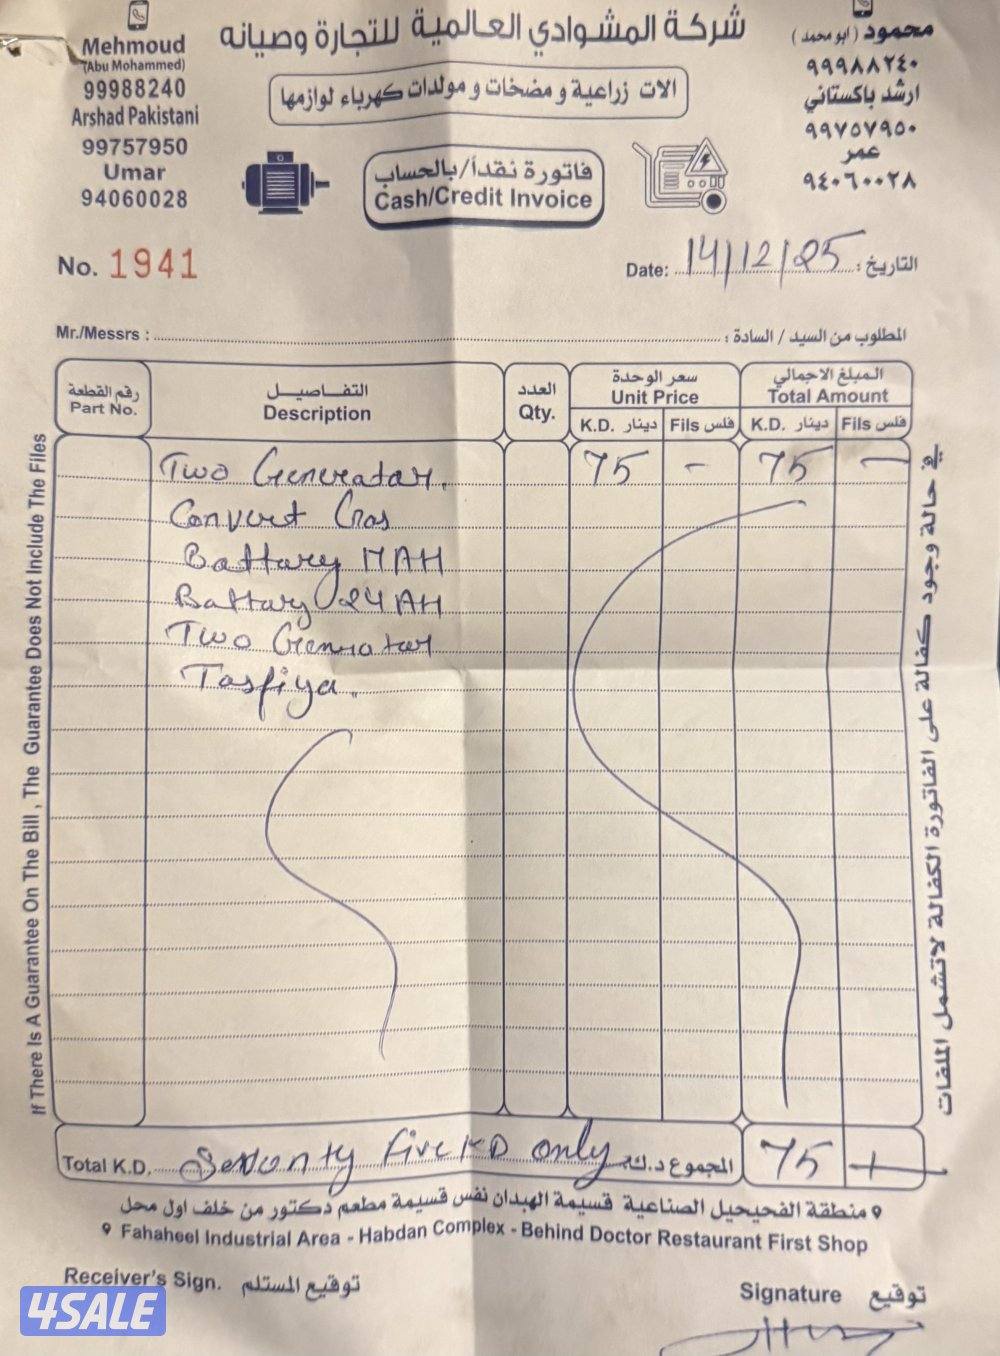 شركة المشوادي العالمية للتجارة وصيانه
الات زراعية و مضخات و مولدات كهرباء لوازمها
Mehmoud
(Abu Mohammed)
99988240
Arshad Pakistani
99757950
Umar
94060028
محمود (ابو محمد)
٩٩٩٨٨٢٤٠
ارشد باكستاني
٩٩٧٥٧٩٥٠
عمر
٩٤٠٦٠٠٢٨
فاتورة نقداً/بالحساب
Cash/Credit Invoice
No. 1941
Date: 14/12/25 التاريخ:
Mr./Messrs : المطلوب من السيد / السادة :
رقم القطعة التفـاصيـل العدد سعر الوحدة المبلغ الاجمالي
Part No. Description Qty. Unit Price Total Amount
K.D. دينار Fils فلس K.D. دينار Fils فلس
Two Generatar. 75 - 75 -
Convert Gas
Battary 17AH
Battary 24AH
Two Generatar
Tasfiya.
Total K.D. Sevonty five KD only المجموع د.ك. 75
If There Is A Guarantee On The Bill , The Guarantee Does Not Include The Files
في حالة وجود كفالة على الفاتورة الكفالة لاتشمل الملفات
منطقة الفحيحيل الصناعية قسيمة الهبدان نفس قسيمة مطعم دكتور من خلف اول محل
Fahaheel Industrial Area - Habdan Complex - Behind Doctor Restaurant First Shop
Receiver's Sign. توقيع المستلم
Signature توقيع
4SALE